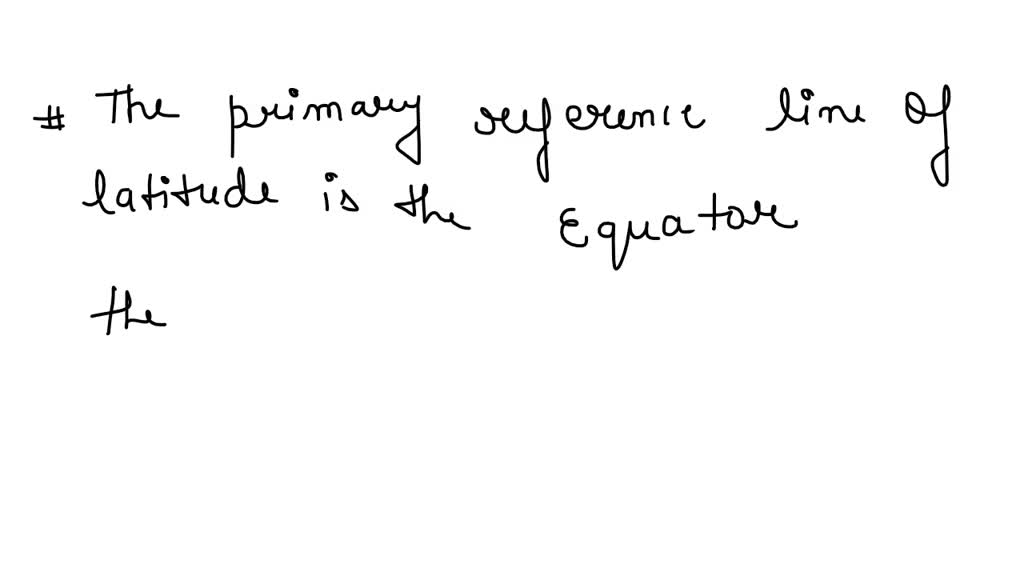 # The primary reference line of
latitude is the Equator
the